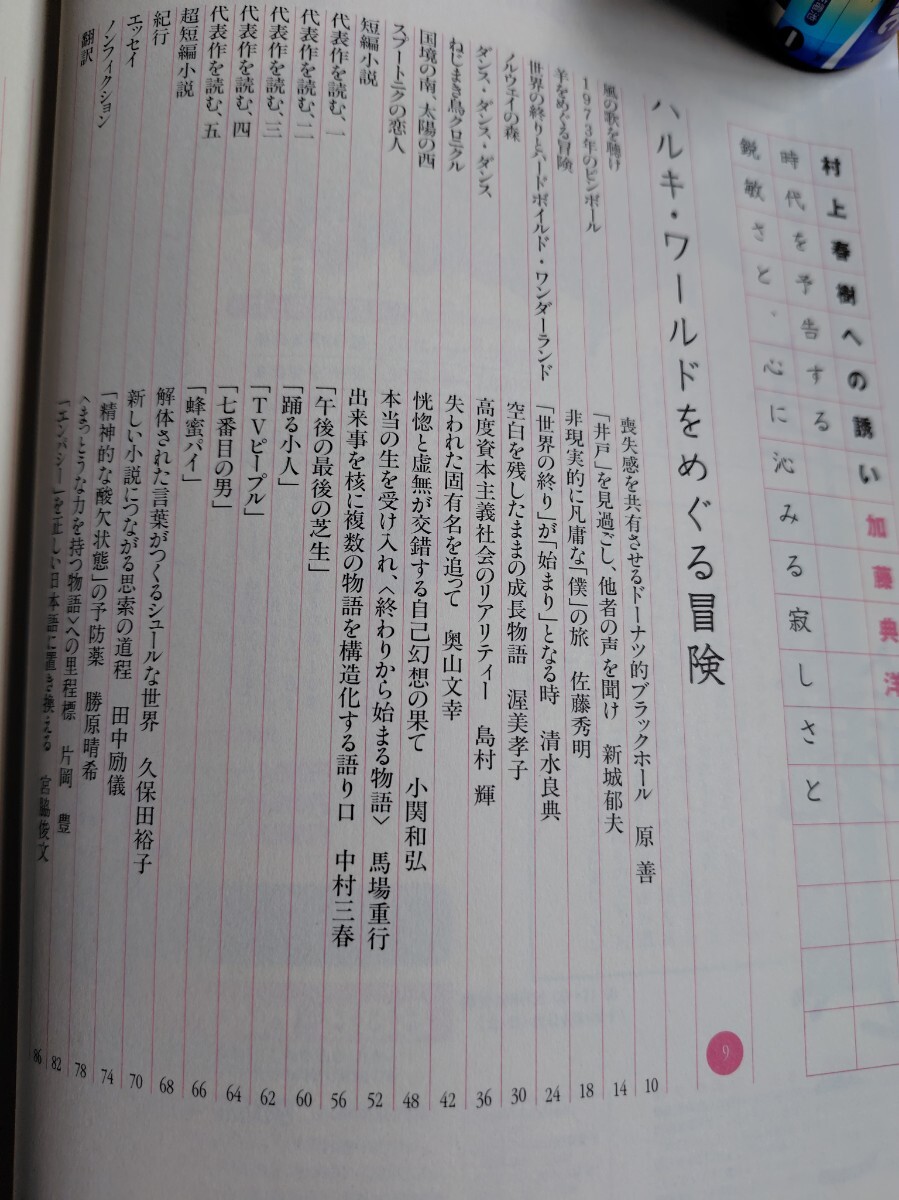 村上春樹への誘い 加藤典洋
時代を予告する
鋭敏さと、心に沁みる寂しさと
ハルキ・ワールドをめぐる冒険 9
風の歌を聴け 喪失感を共有させるドーナツ的ブラックホール 原 善 10
1973年のピンボール 「井戸」を見過ごし、他者の声を聞け 新城郁夫 14
羊をめぐる冒険 非現実的に凡庸な「僕」の旅 佐藤秀明 18
世界の終りとハードボイルド・ワンダーランド 「世界の終り」が「始まり」となる時 清水良典 24
ノルウェイの森 空白を残したままの成長物語 渥美孝子 30
ダンス・ダンス・ダンス 高度資本主義社会のリアリティー 島村 輝 36
ねじまき鳥クロニクル 失われた固有名を追って 奥山文幸 42
国境の南、太陽の西 恍惚と虚無が交錯する自己幻想の果て 小関和弘 48
スプートニクの恋人 本当の生を受け入れ、〈終わりから始まる物語〉 馬場重行 52
短編小説 出来事を核に複数の物語を構造化する語り口 中村三春 56
代表作を読む、一 「午後の最後の芝生」 60
代表作を読む、二 「踊る小人」 62
代表作を読む、三 「TVピープル」 64
代表作を読む、四 「七番目の男」 66
代表作を読む、五 「蜂蜜パイ」 68
超短編小説 解体された言葉がつくるシュールな世界 久保田裕子 70
紀行 新しい小説につながる思索の道程 田中励儀 74
エッセイ 「精神的な酸欠状態」の予防薬 勝原晴希 78
ノンフィクション 〈まっとうな力を持つ物語〉への里程標 片岡 豊 82
翻訳 「エンパシー」を正しい日本語に置き換える 宮脇俊文 86